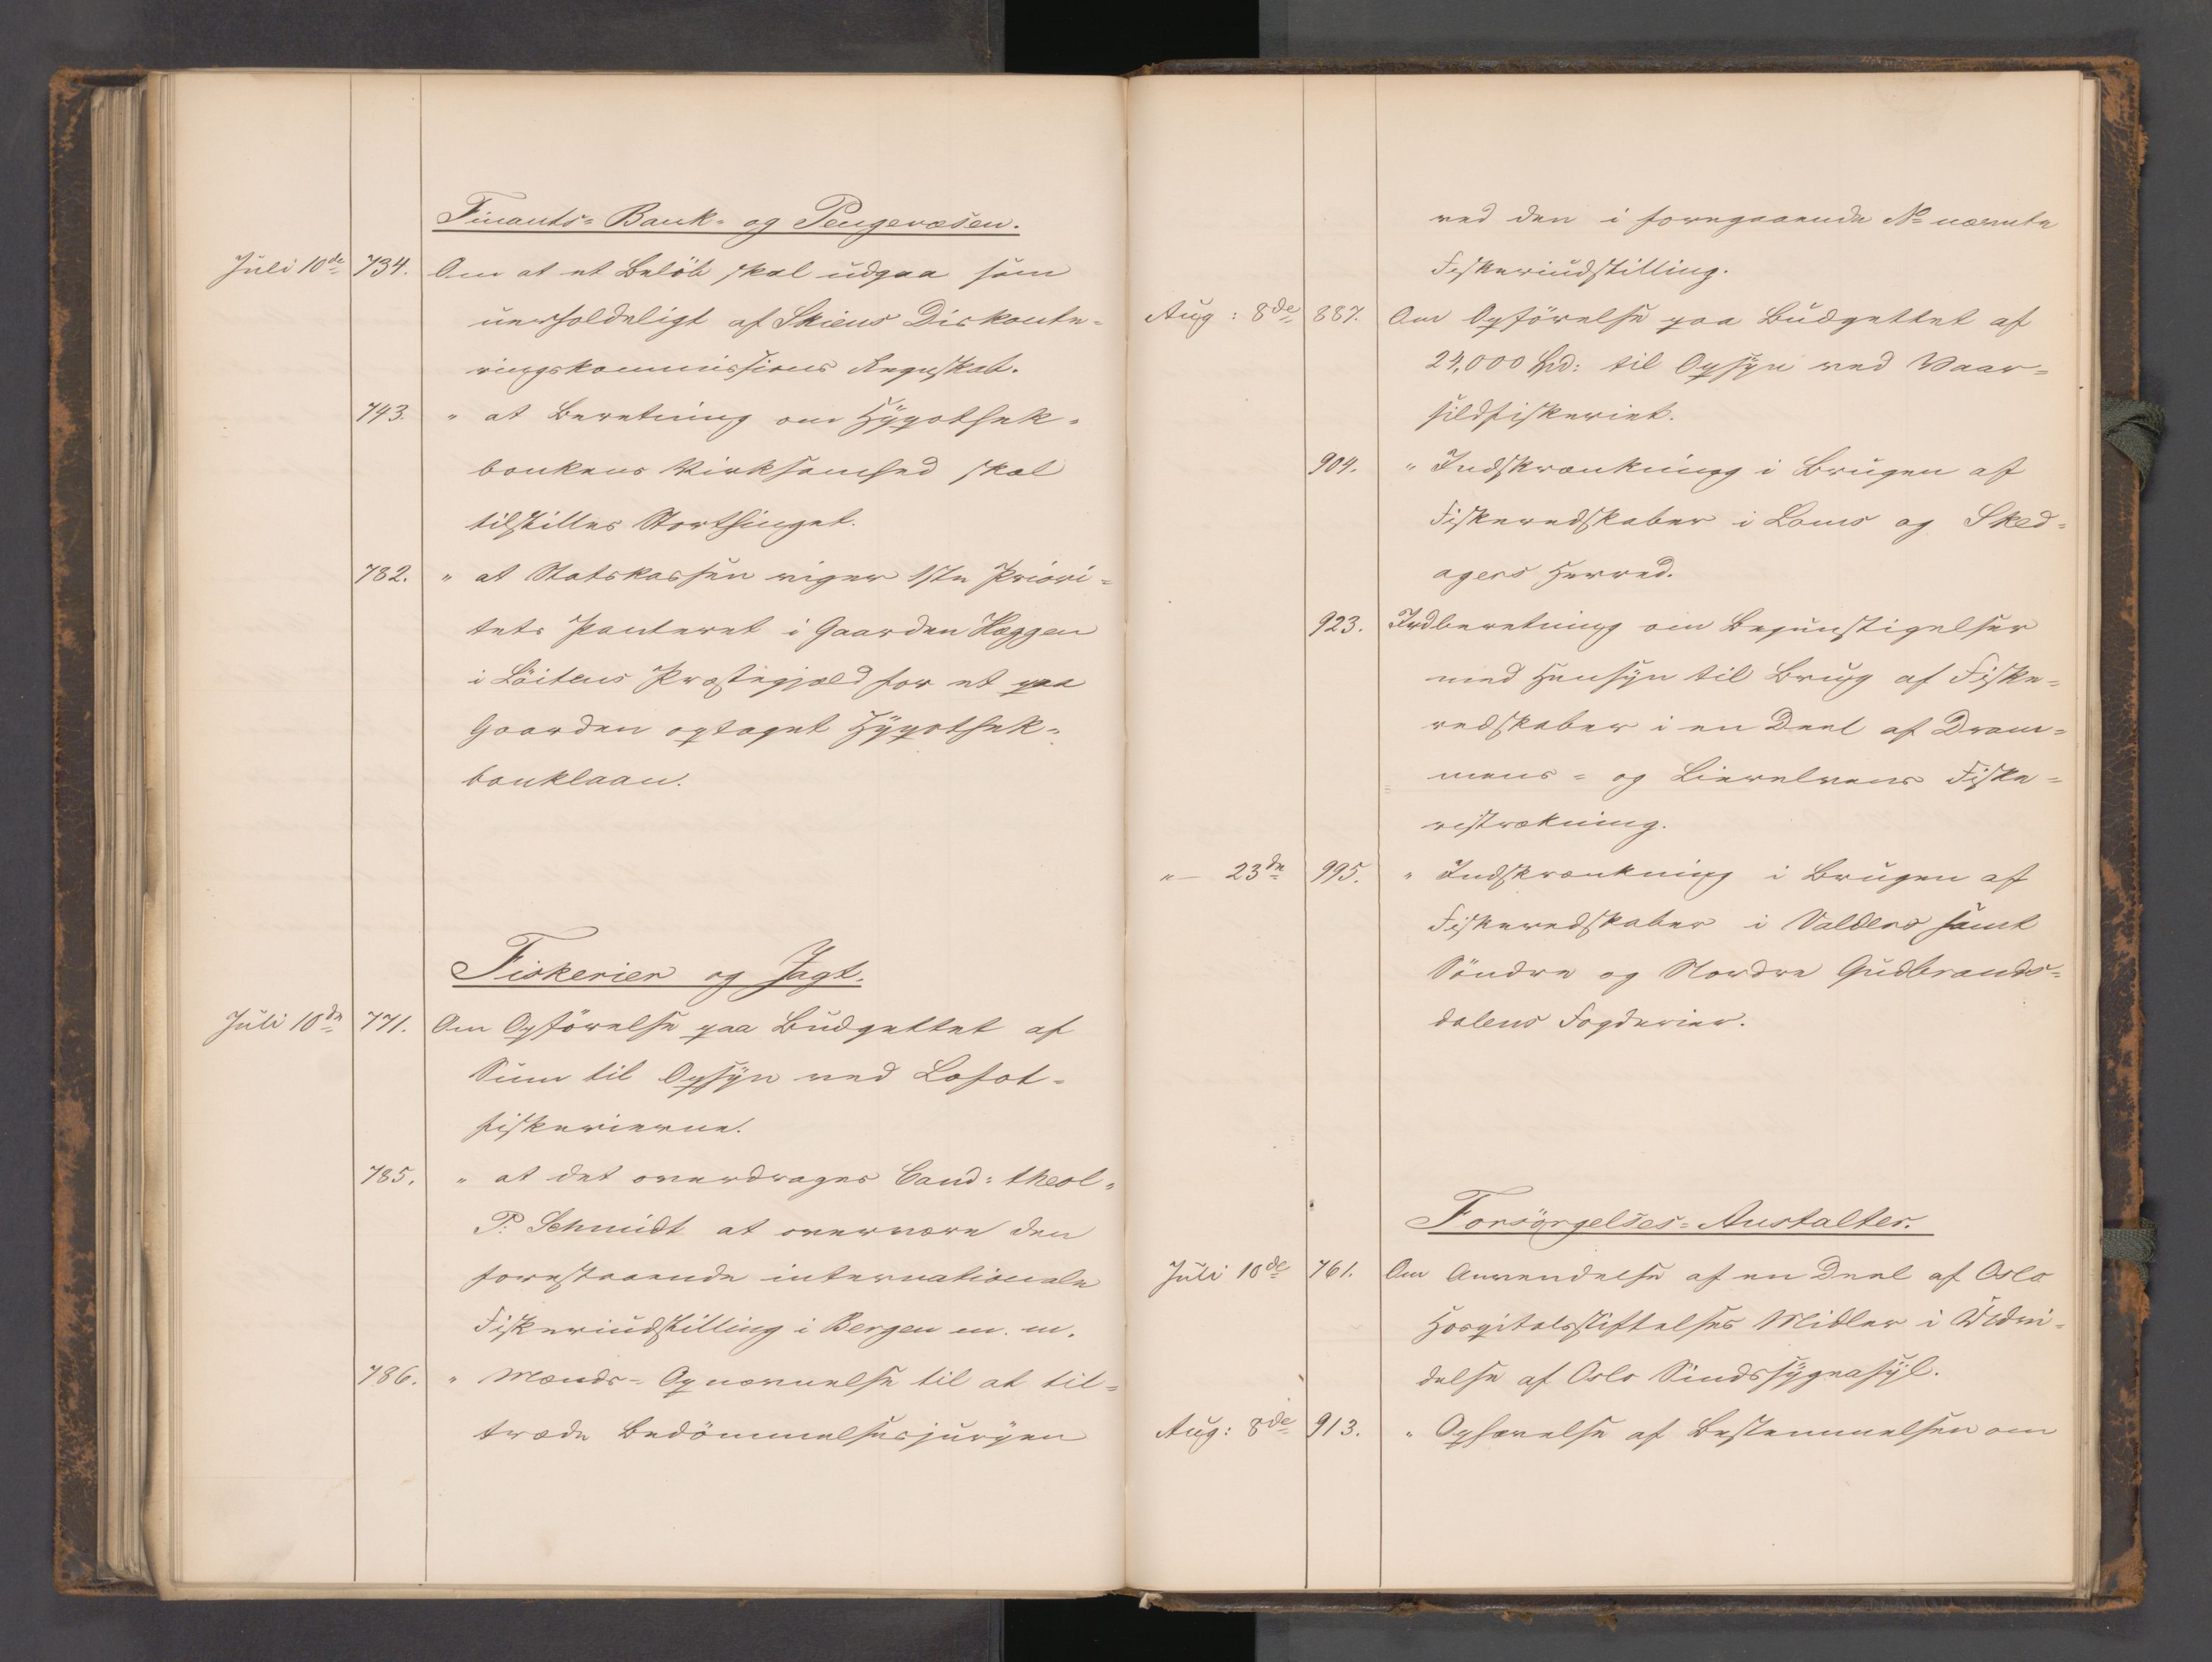 Finants- Bank- og Pengevæsen.
Juli 10de 734. Om at et Beløb skal udgaa som
uerholdeligt af Skiens Diskonte-
ringskommissions Regnskab.
743. " at Beretning om Hypothek-
bankens Virksomhed skal
tilstilles Storthinget.
782. " at Statskassen viger 1ste Priori-
tets Panteret i Gaarden Hæggen
i Löitens Præstegjæld for et paa
Gaarden optaget Hypothek-
banklaan.
Fiskerier og Jagt.
Juli 10de 771. Om Opförelse paa Budgettet af
Sum til Opsyn ved Lofot-
fiskerierne.
785. " at det overdrages Cand: theol-
P. Schmidt at overvære den
forestaaende internationale
Fiskeriudstilling i Bergen m. m.
786. " Mænds- Opnævnelse til at til-
træde Bedömmelsesjuryen
ved den i foregaaende No nævnte
Fiskeriudstilling.
Aug: 8de 887. Om Opförelse paa Budgettet af
24,000 Spd: til Opsyn ved Vaar-
sildfiskeriet.
904. " Indskrænkning i Brugen af
Fiskeredskaber i Loms og
Herred.
923. Indberetning om Begunstigelser
med Hensyn til Brug af Fiske-
redskaber i en Deel af Dram-
mens- og Lierelvens Fiske-
ristrækning.
"- 23de 995. " Indskrænkning i Brugen af
Fiskeredskaber i Valders samt
Söndre og Nordre Gudbrands-
dalens Fogderier.
Forsörgelses- Anstalter.
Juli 10de 761. Om Anvendelse af en Deel af Oslo
Hospitalsstiftelses Midler i Udvi-
delse af Oslo Sindssygeasyl.
Aug: 8de 913. " Ophævelse af Bestemmelsen om